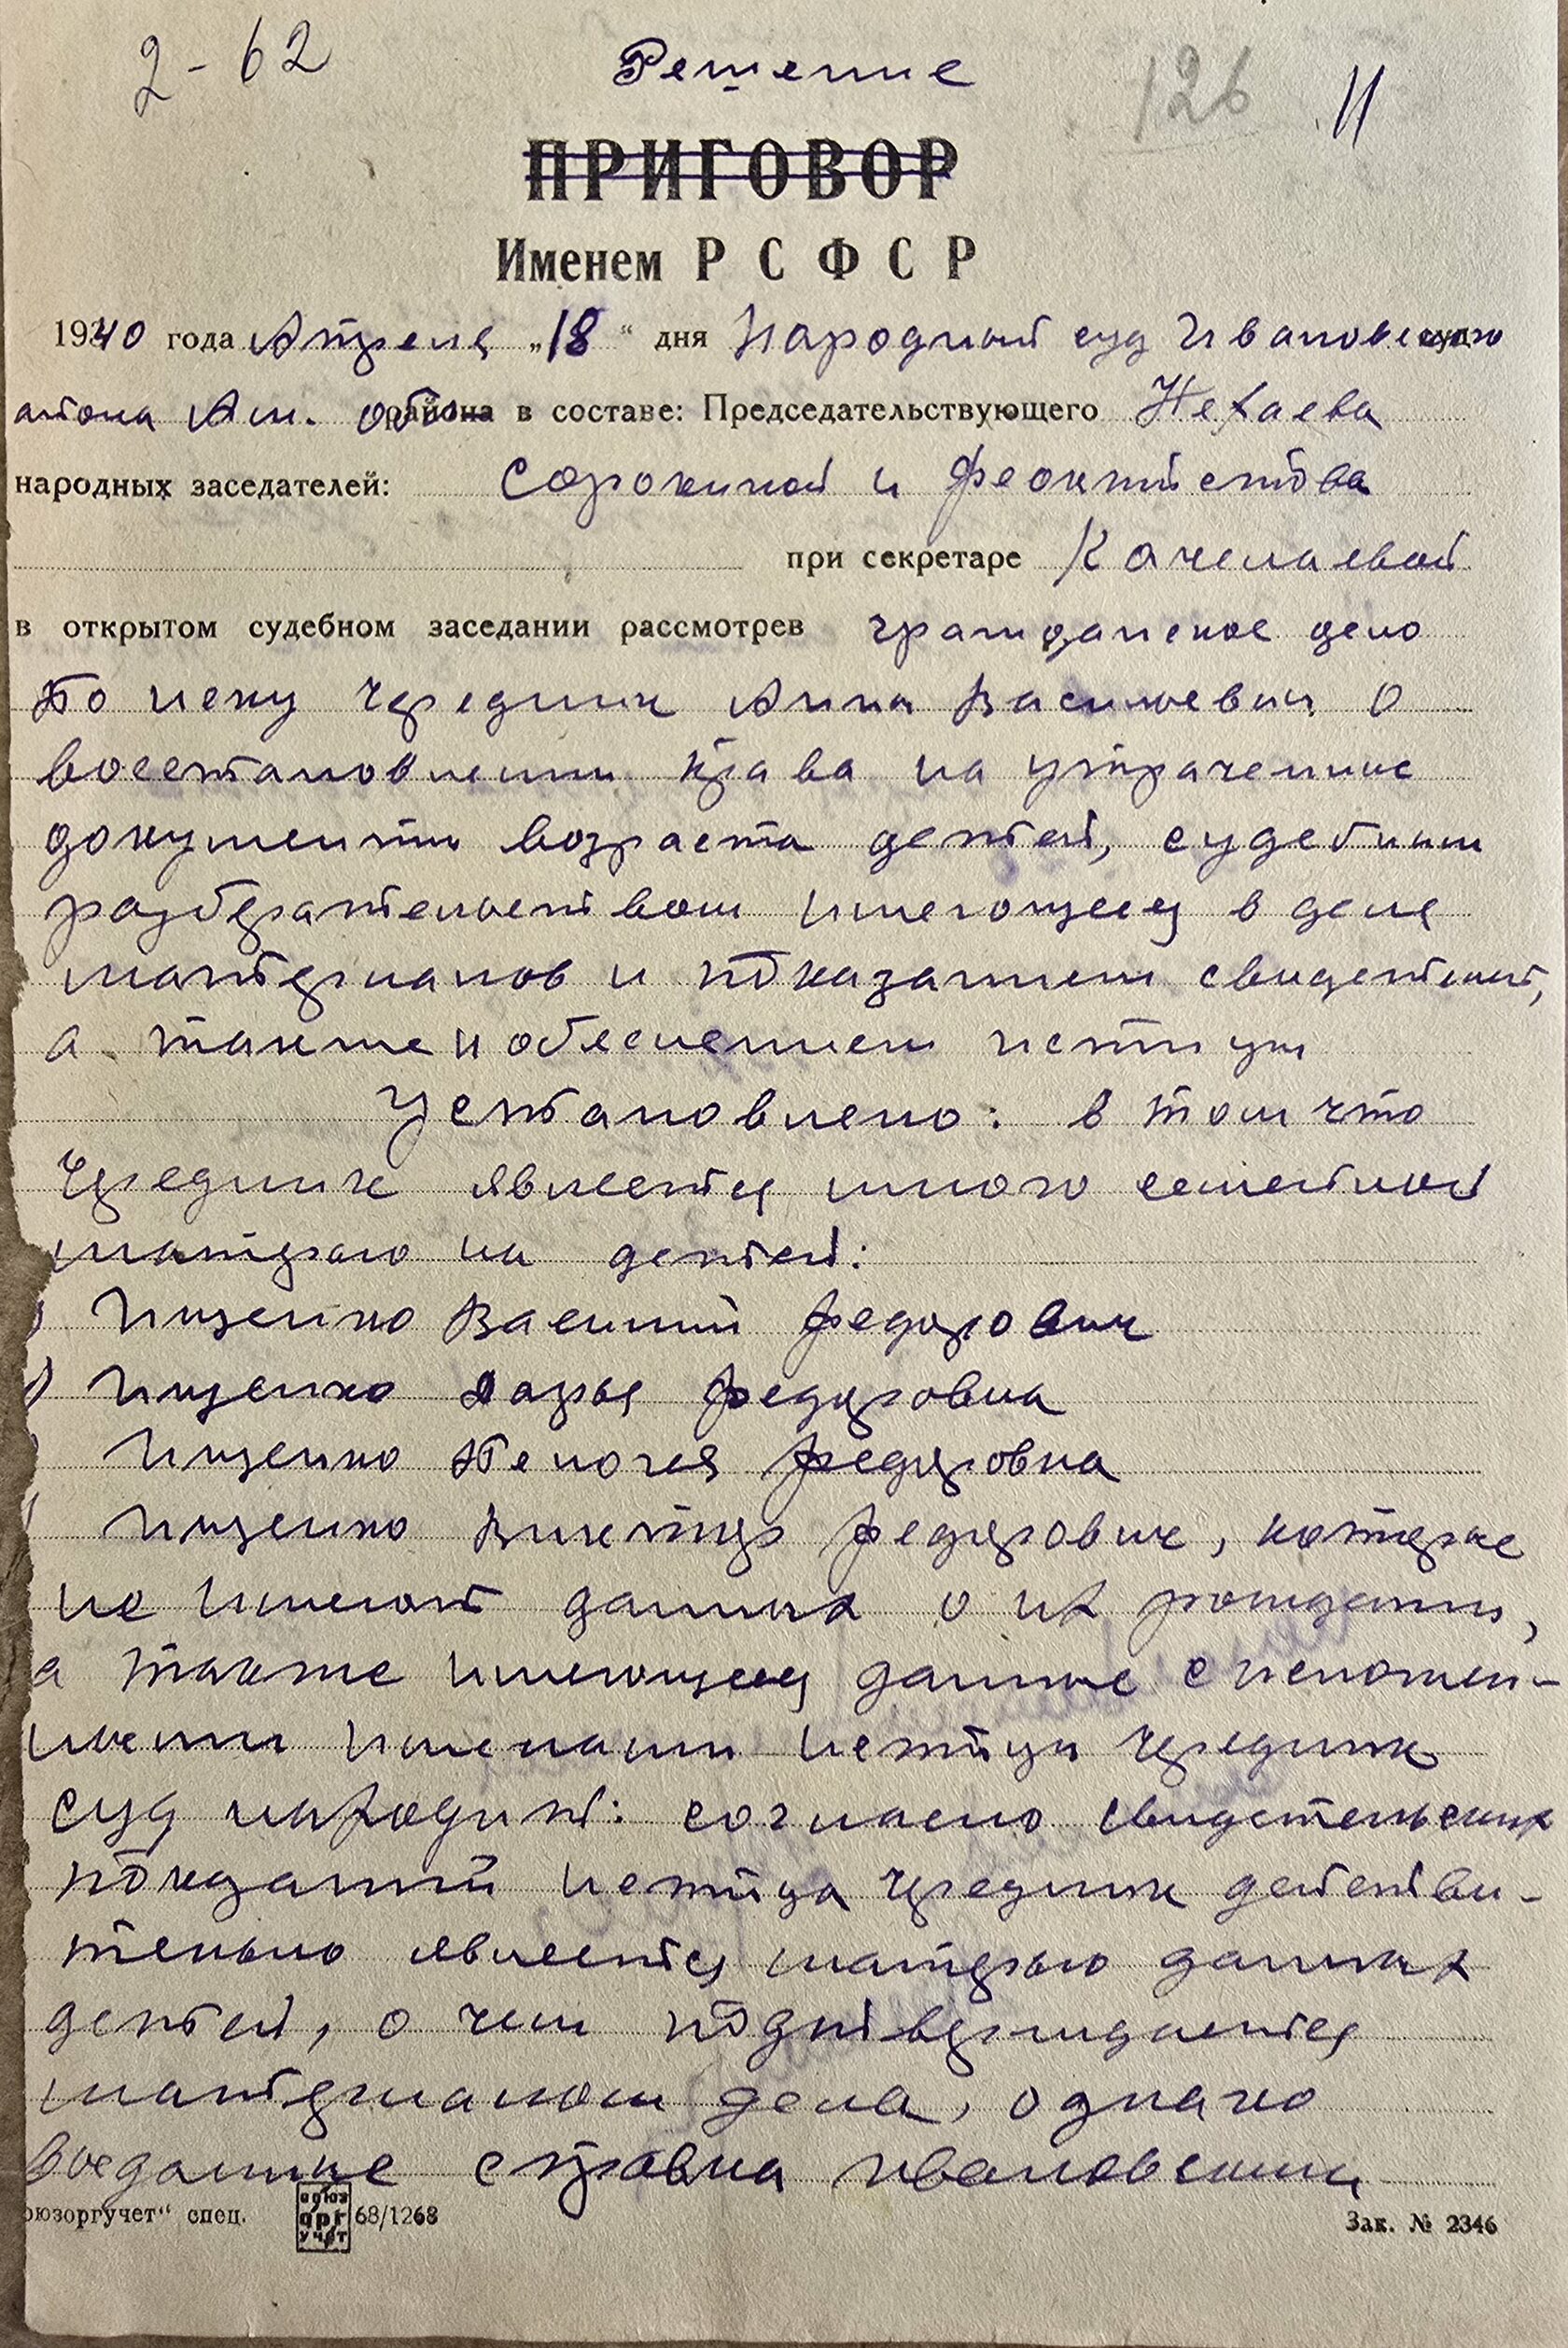 2-62 Решение 126 11
ПРИГОВОР
Именем РСФСР
1940 года Апреля „18“ дня Народный суд Ивановского
района Ам. обл. района в составе: Председательствующего Нехаева
народных заседателей: Сорокиной и Феоктистова
при секретаре
в открытом судебном заседании рассмотрев гражданское дело
по иску Чередник Анны Васильевны о
восстановлении права на утраченные
документы возраста детей, судебным
разбирательством имеющеся в деле
материалов и показанием свидетелей,
а также и обеснением истицы
Установлено: в том что
Чередник является много семейной
матерью на детей:
Ищенко Василий Федорович
Ищенко Дарья Федоровна
Ищенко Пелогея Федоровна
Ищенко Виктор Федорович, которые
не имеют данных о их рождении,
а также имеющеся данные с
именами истицы Чередник
суд находит: согласно свидетельских
показаний истица Чередник действи-
тельно является матерью данных
детей, о чем подтверждается
материалом дела, однако
выданные справка Ивановским
оюзоргучет“ спец. союз орг учет 68/1268 Зак. № 2346